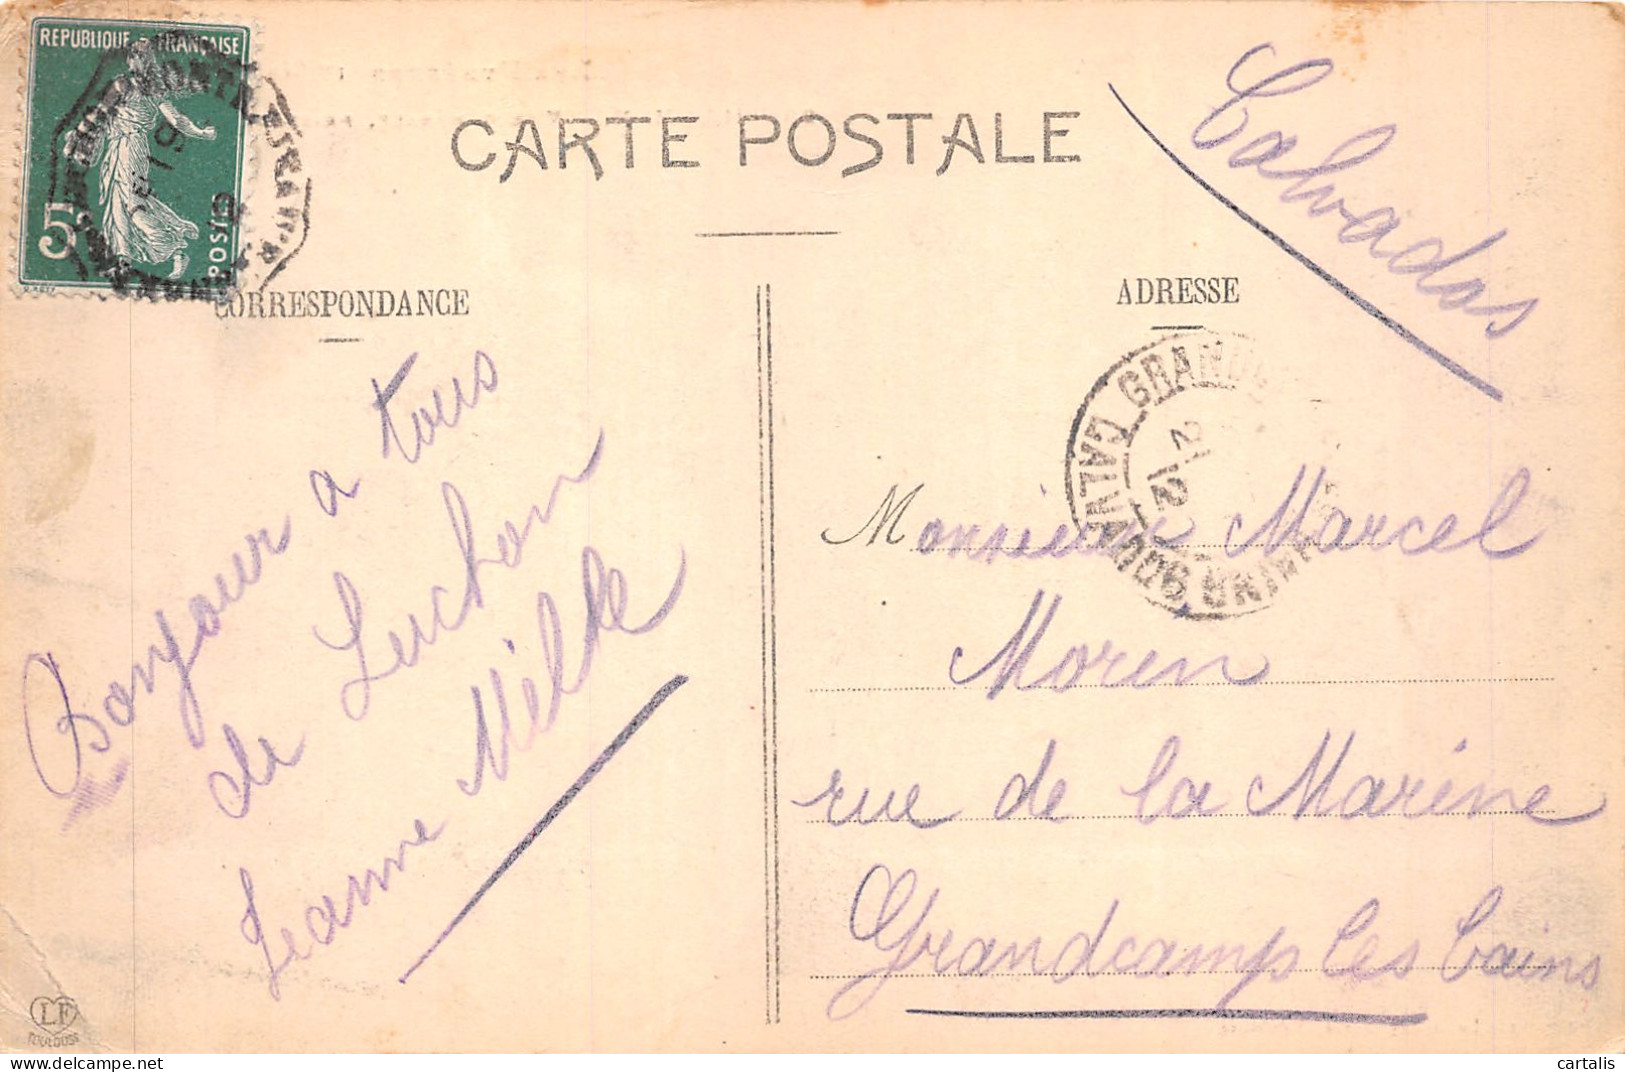 REPUBLIQUE FRANÇAISE
5
POSTES
CARTE POSTALE
Calvados
CORRESPONDANCE
ADRESSE
Bonjour a tous
de Luchon
Jeanne
GRAND
CALVADOS
21
12
Monsieur Marcel
Moren
rue de la Marine
Grandcamp les bains
LF
TOULOUSE
cartalis